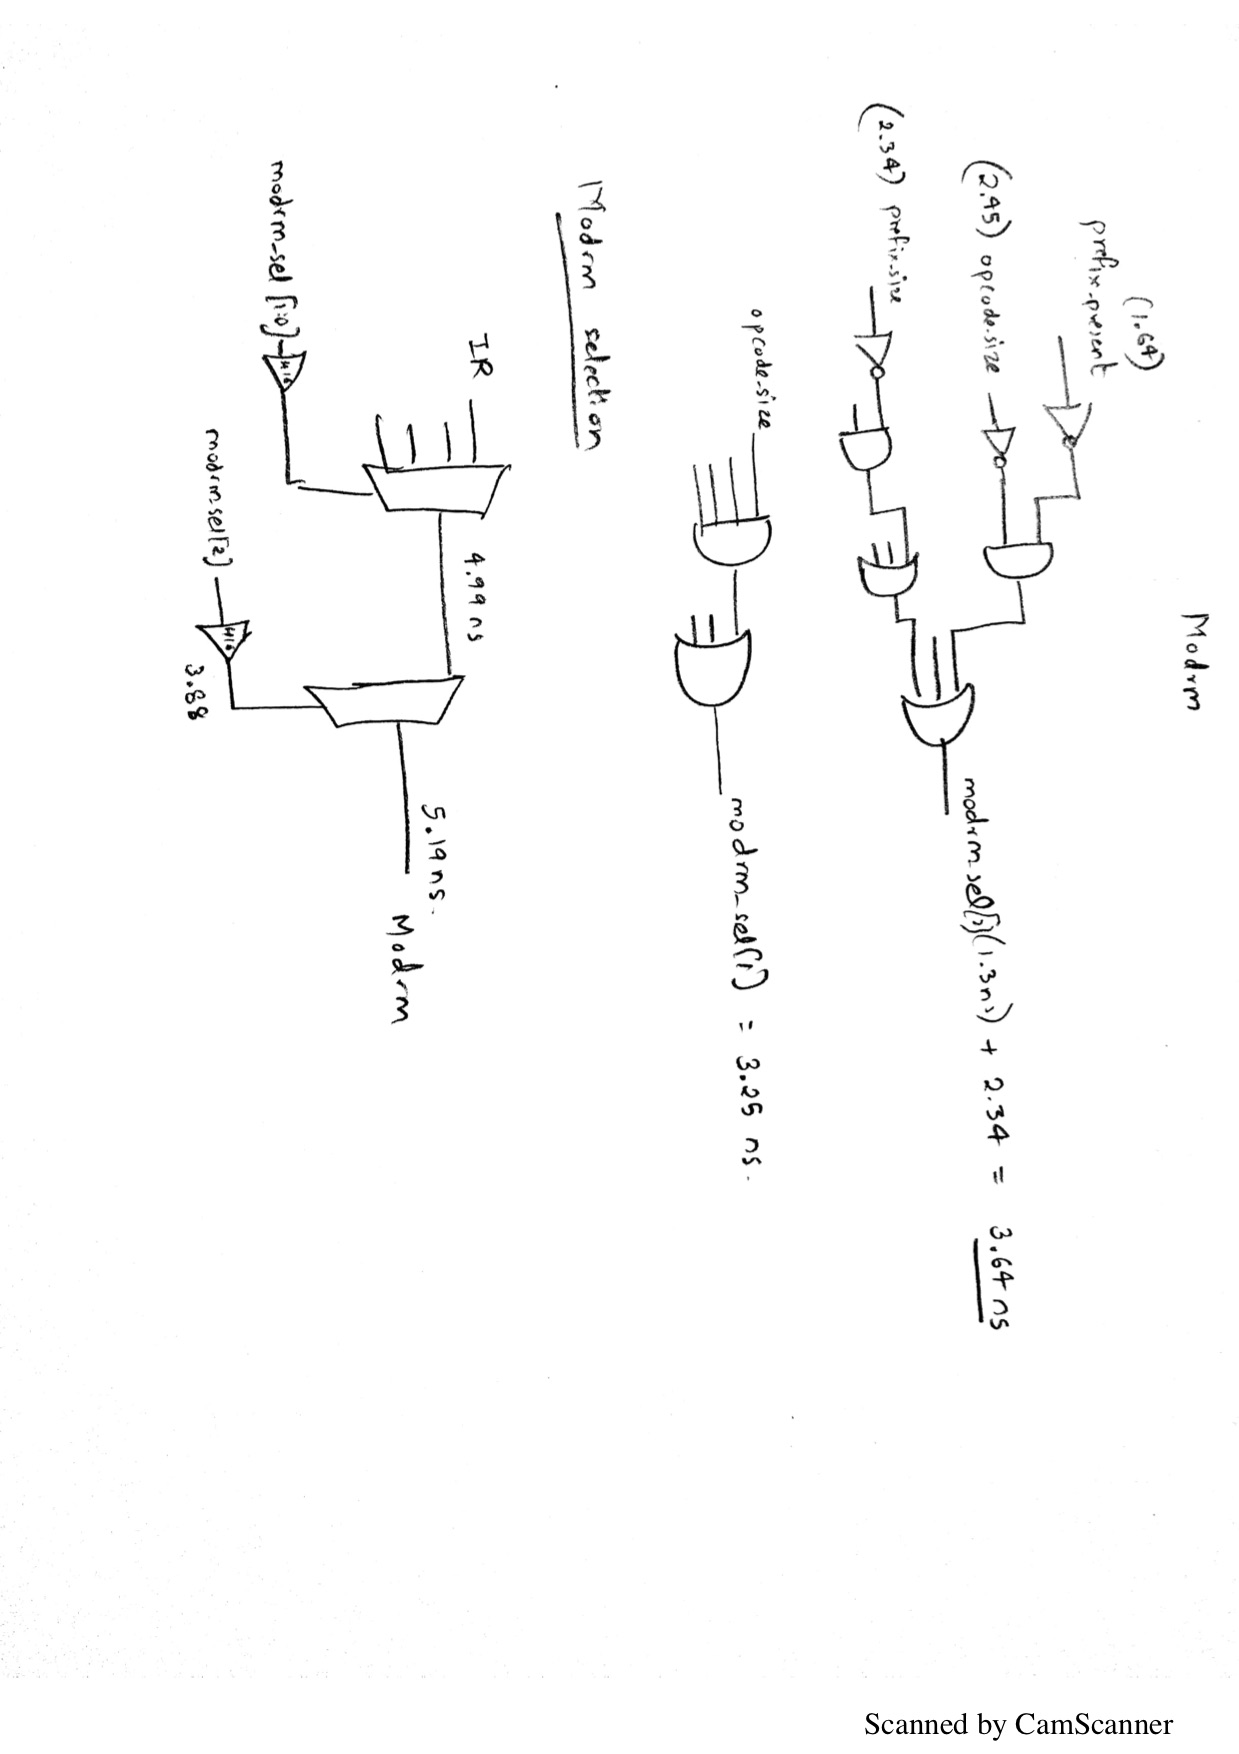 Modrm
(1.64)
prefix-present
(2.45) opcode-size
(2.34) prefix-size
modrm-sel[2](1.3ns) + 2.34 = 3.64 ns
opcode-size
modrm-sel[1] = 3.25 ns.
Modrm selection
IR
4.99 ns
5.19 ns.
Modrm
modrm-sel [1:0]
H16
modrm-sel[2]
H16
3.88
Scanned by CamScanner